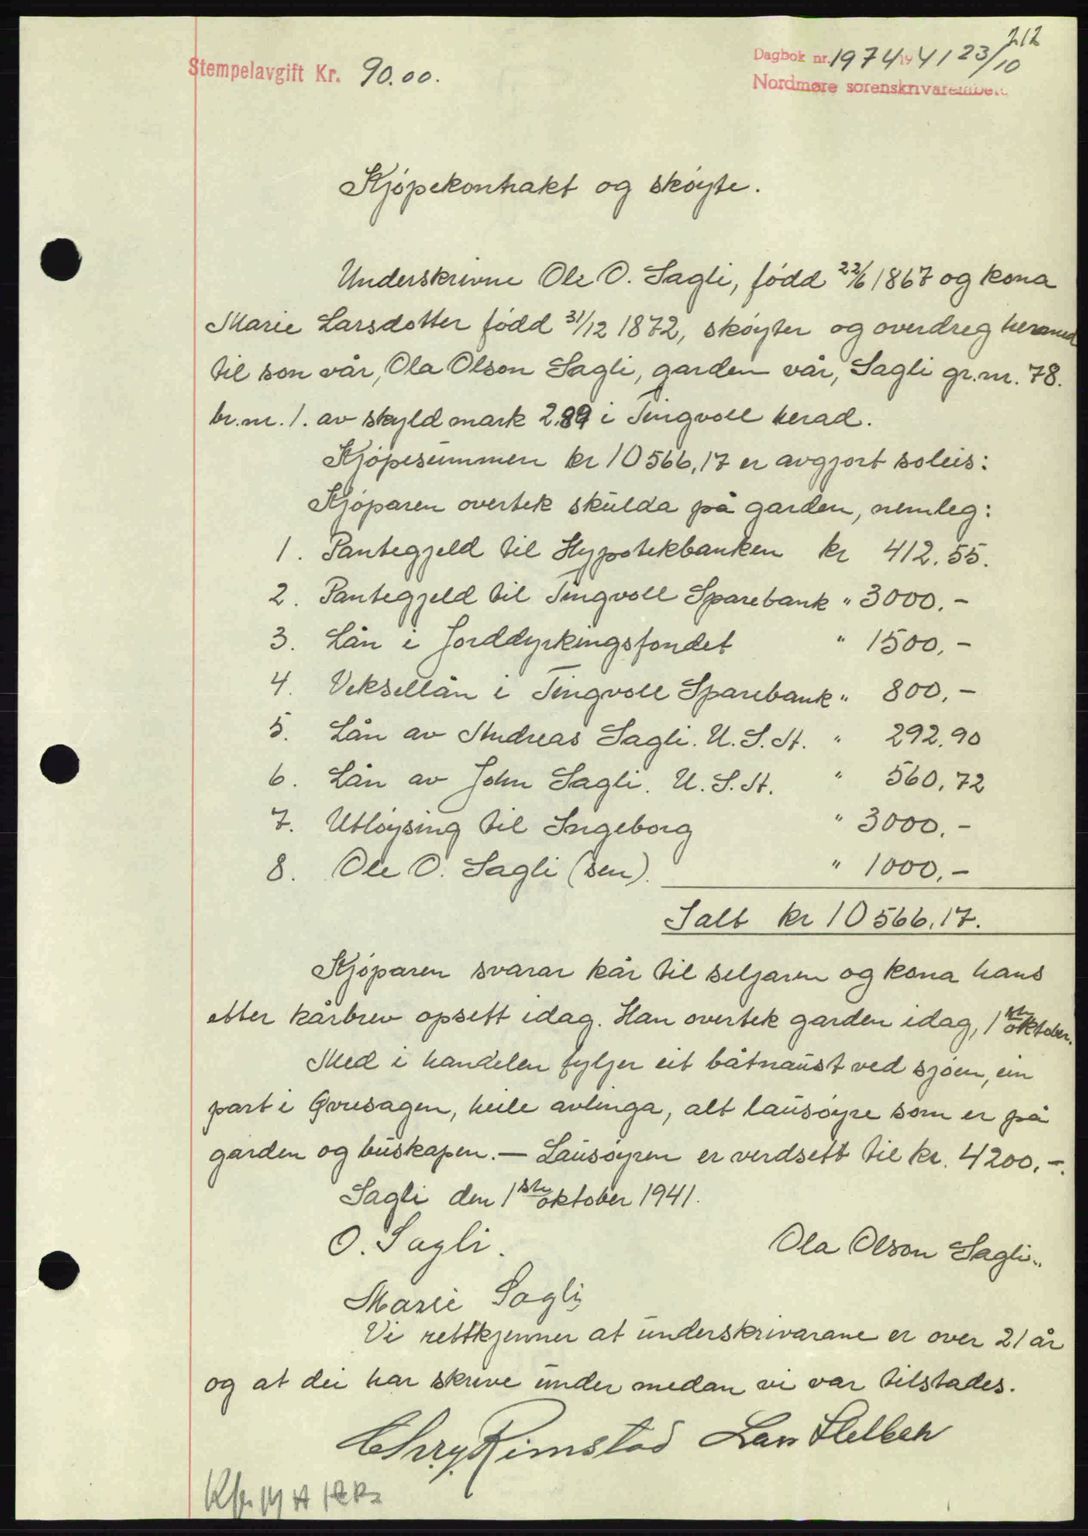 212
Stempelavgift Kr. 90.00.
Dagbok nr. 1974 1941 23/10
Nordmøre sorenskrivarembete
Kjøpekontrakt og skøyte.
Underskrivne Ole O. Sagli, fødd 22/6 1867 og kona
Marie Larsdotter fødd 31/12 1872, skøyter og overdreg hermed
til son vår, Ola Olson Sagli, garden vår, Sagli gr.nr. 78.
br.nr. 1. av skyld mark 2.89 i Tingvoll herad.
Kjøpesummen kr 10566,17 er avgjort soleis:
Kjøparen overtek skulda på garden, nemleg:
1. Pantegjeld til Hypotekbanken kr 412.55.
2. Pantegjeld til Tingvoll Sparebank " 3000.-
3. Lån i Jorddyrkingsfondet " 1500,-
4. Veksellån i Tingvoll Sparebank " 800,-
5. Lån av Andreas Sagli. U.S.A. " 292.90
6. Lån av John Sagli. U.S.A. " 560,72
7. Utløysing til Ingeborg " 3000.-
8. Ole O. Sagli (sen). " 1000,-
Ialt kr 10566,17.
Kjøparen svarar kår til seljaren og kona hans
etter kårbrev opsett idag. Han overtek garden idag, 1ste oktober.
Med i handelen fyljer eit båtnaust ved sjøen, ein
part i Øvresagen, heile avlinga, alt lausøyre som er på
garden og buskapen. — Lausøyren er verdsett til kr. 4200,-.
Sagli den 1ste oktober 1941.
O. Sagli. Ola Olson Sagli.
Marie Sagli
Vi rettkjenner at underskrivarane er over 21 år
og at dei har skreve under medan vi var tilstades.
Chr. Rimstad Lars